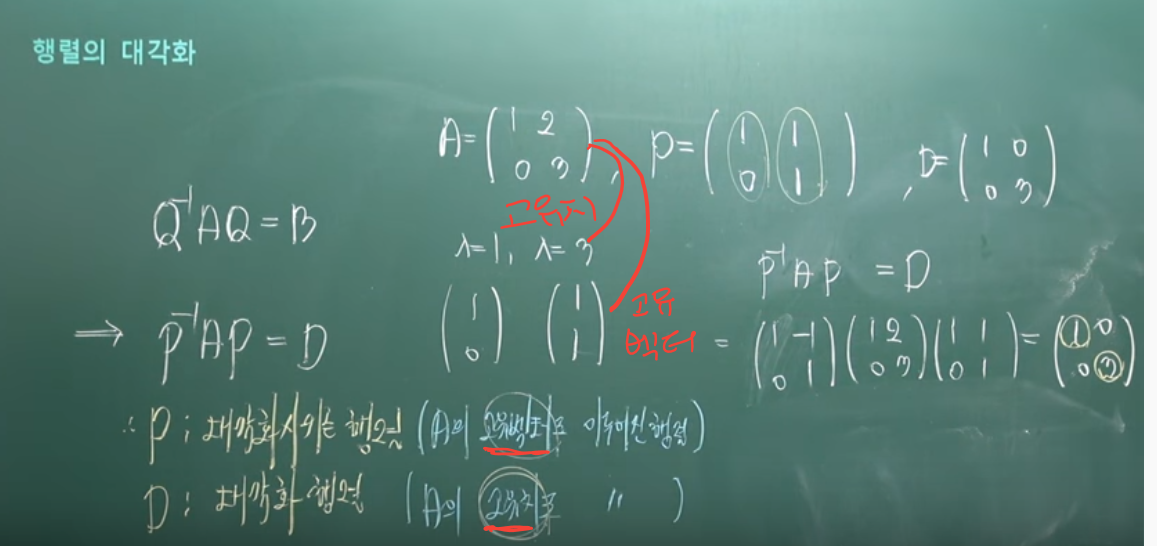 행렬의 대각화
A = ( 1 2 ; 0 3 ) , P = ( 1 1 ; 0 1 ) , D = ( 1 0 ; 0 3 )
고유치
Q⁻¹AQ = B
λ=1, λ=3
P⁻¹AP = D
( 1 ; 0 ) ( 1 ; 1 )
고유
벡터
⇒ P⁻¹AP = D
= ( 1 -1 ; 0 1 ) ( 1 2 ; 0 3 ) ( 1 1 ; 0 1 ) = ( 1 0 ; 0 3 )
∴ P : 대각화시키는 행렬 (A의 고유벡터로 이루어진 행렬)
D : 대각화 행렬 (A의 고유치로 〃 )